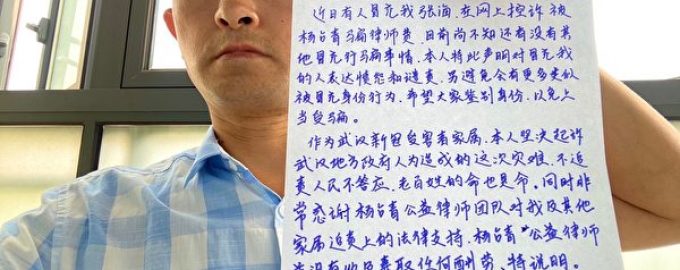 近日有人冒充我张海，在网上控诉被
杨占青马骗律师费，目前尚不知还有没有其
他冒充行骗事情，本人特此声明对冒充我
的人表达愤怒和谴责，另避免会有更多类似
被冒充身份行为，希望大家鉴别身份，以免上
当受骗。
作为武汉新冠受害者家属，本人坚决起诉
武汉地方政府人为造成的这次灾难，不追
责人民不答应，老百姓的命也是命。同时非
常感谢杨占青公益律师团队对我及其他
家属追责上的法律支持，杨占青"公益律师
没有收取任何酬劳，特说明。